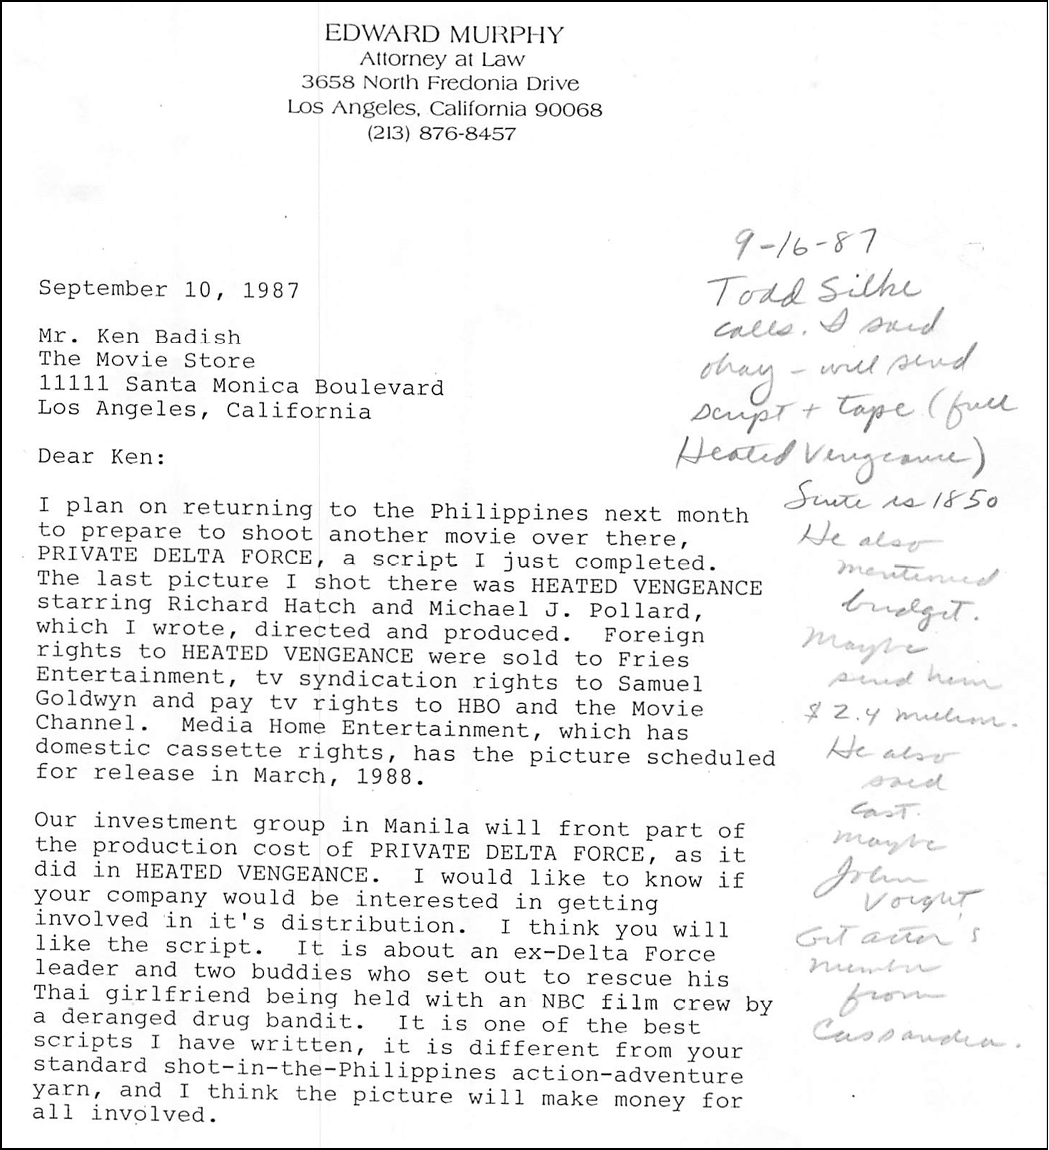 EDWARD MURPHY
Attorney at Law
3658 North Fredonia Drive
Los Angeles, California 90068
(213) 876-8457
September 10, 1987
Mr. Ken Badish
The Movie Store
11111 Santa Monica Boulevard
Los Angeles, California
Dear Ken:
I plan on returning to the Philippines next month
to prepare to shoot another movie over there,
PRIVATE DELTA FORCE, a script I just completed.
The last picture I shot there was HEATED VENGEANCE
starring Richard Hatch and Michael J. Pollard,
which I wrote, directed and produced.  Foreign
rights to HEATED VENGEANCE were sold to Fries
Entertainment, tv syndication rights to Samuel
Goldwyn and pay tv rights to HBO and the Movie
Channel.  Media Home Entertainment, which has
domestic cassette rights, has the picture scheduled
for release in March, 1988.
Our investment group in Manila will front part of
the production cost of PRIVATE DELTA FORCE, as it
did in HEATED VENGEANCE.  I would like to know if
your company would be interested in getting
involved in it's distribution.  I think you will
like the script.  It is about an ex-Delta Force
leader and two buddies who set out to rescue his
Thai girlfriend being held with an NBC film crew by
a deranged drug bandit.  It is one of the best
scripts I have written, it is different from your
standard shot-in-the-Philippines action-adventure
yarn, and I think the picture will make money for
all involved.
9-16-87
Todd Silke
calls. I said
okay - will send
script + tape (full
Heated Vengeance)
Suite is 1850
He also
mentioned
budget.
Maybe
send him
$2.4 million.
He also
said
cast.
Maybe
John
Voight
Get actor's
number
from
Cassandra.